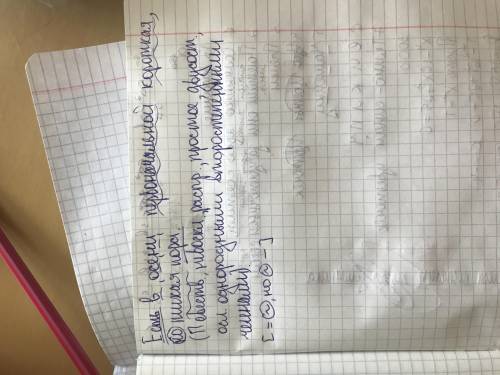 Есть в осени первоначальной короткая,
но дивная пора.
(Повеств, невоскл, распр, простое, двусост,
осл однородными второстепенными
членами).
[= О, но О –]